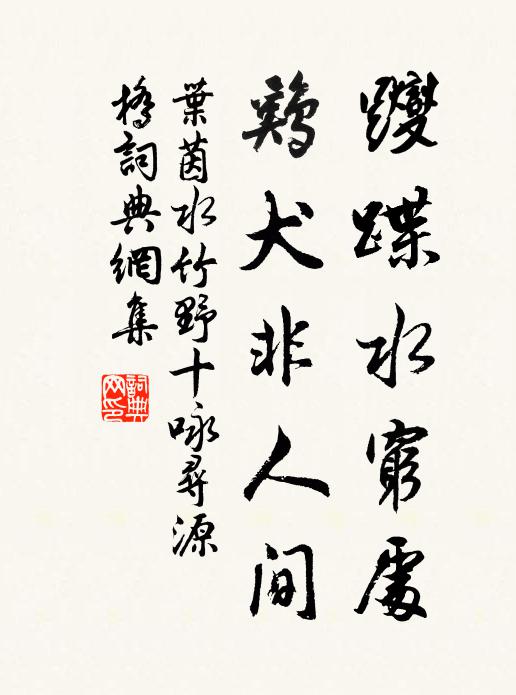 躞蹀水窮處
鷄犬非人間
葉茵水竹野十咏尋源
橋詞典網集
詞典
网印